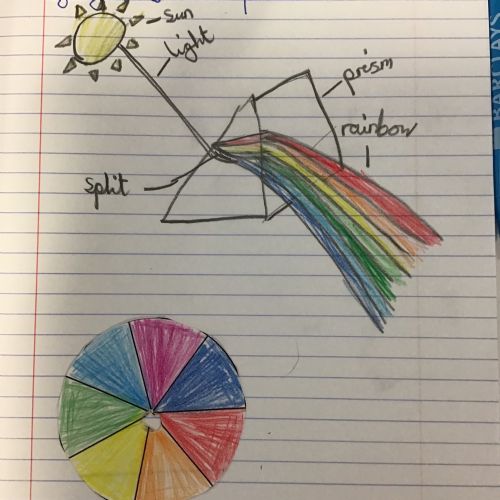 sun
light
prism
rainbow
split
BARCLAYS